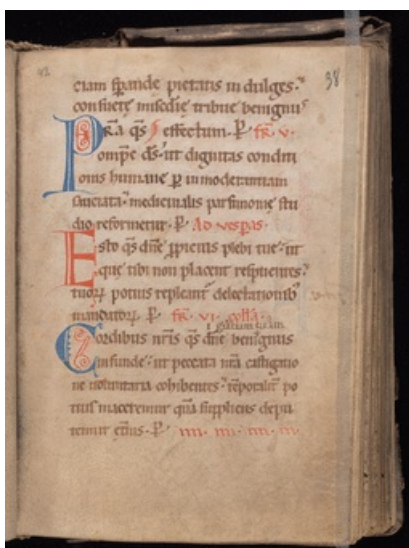 42 38
ciam spande pietatis indulges.
consuete misedie tribue benignus
Pra qs effectum. P. fr. v.
ompe ds. ut dignitas conditi
onis humane p inmoderantiam
sauciata. medicinalis parsimonie stu
dio reformetur. P. Ad vesperas.
Esto qs dne ppicius plebi tue. ut
que tibi non placent respuentes.
tuorum potius repleant delectationib
mandatorum. P. fr. vi. coll̄a.
gratiam tuam
Cordibus nris qs dne benignus
infunde. ut peccata nra castigatio
ne voluntaria cohibentes. temporalit po
tius maceremur qua suppliciis depu
temur etnis. P.